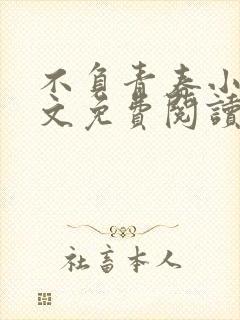 不負青春小
文免費閱讀
社畜本人